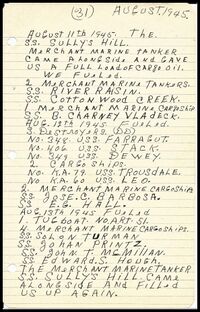 (31) AUGUST. 1945.
AUGUST 11TH 1945. THE.
SS. SULLY'S HILL.
MERCHANT MARINE TANKER
CAME ALONGSIDE AND GAVE
US A FULL LOAD OF CARGO OIL.
WE FUELED.
2 MERCHANT MARINE TANKERS.
SS. RIVER RAISIN.
SS. COTTONWOOD CREEK.
1 MERCHANT MARINE CARGO SHIP
SS. B. CHARNEY VLADECK.
AUG. 12TH 1945 FUELED.
3. DESTROYERS. (DD)
NO. 348 USS. FARRAGUT.
NO. 406 USS. STACK.
NO. 349 USS. DEWEY.
2 CARGO SHIPS.
NO. KA.79 USS. TROUSDALE.
NO. KA.60 USS. LEO.
2. MERCHANT MARINE CARGO SHIPS
SS. JOSE. G. BARBOSA.
SS. E.G. HALL.
AUG. 13TH 1945 FUELED
1 TUGBOAT NO. ART. 51
4. MERCHANT MARINE CARGO SHIPS.
SS. SOLON TURMAN
SS. JOHAN PRINTZ.
SS. JOHN T. MCMILLIAN.
SS. EDWARD S. HOUGH.
THE MERCHANT MARINE TANKER
SS. SULLY'S HILL. CAME
ALONGSIDE AND FILLED
US UP AGAIN.